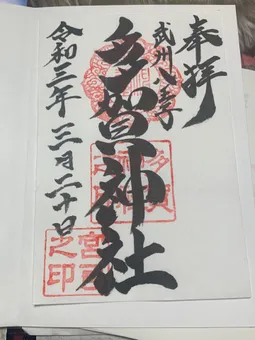 奉拝
武州八王子
多賀神社
令和三年三月二十日
多賀神社
宮司之印